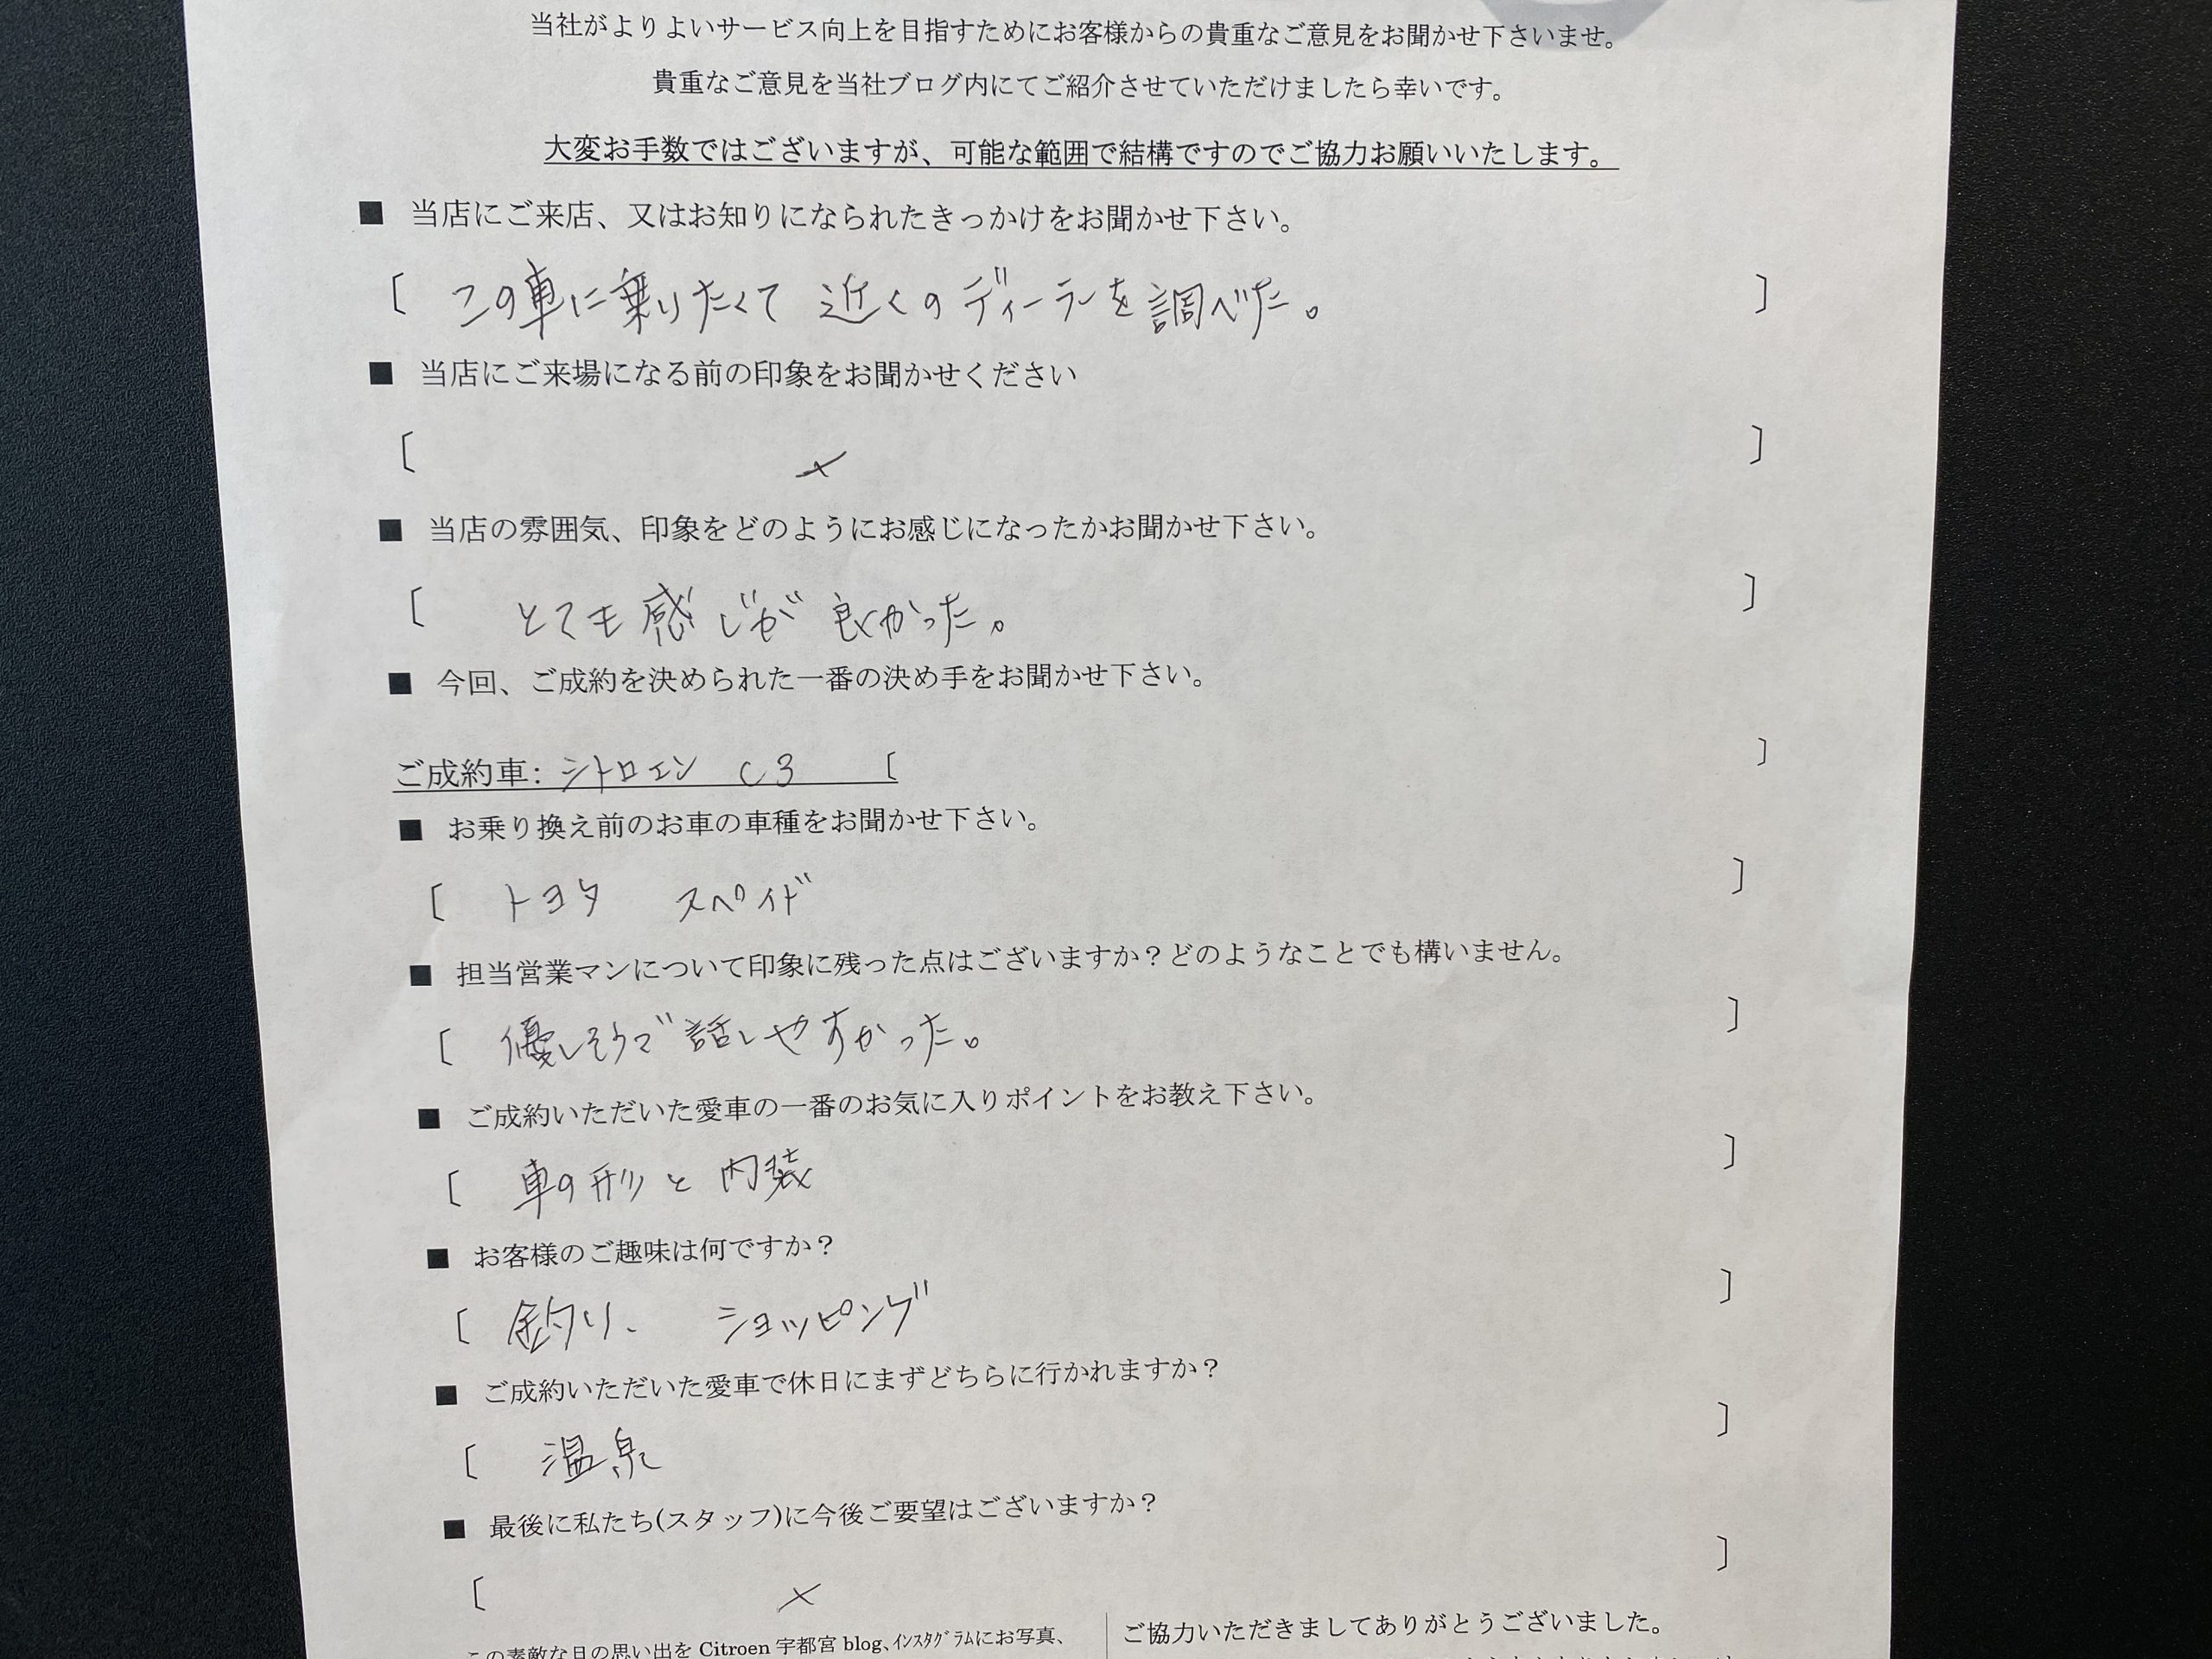 当社がよりよいサービス向上を目指すためにお客様からの貴重なご意見をお聞かせ下さいませ。
貴重なご意見を当社ブログ内にてご紹介させていただけましたら幸いです。
大変お手数ではございますが、可能な範囲で結構ですのでご協力お願いいたします。
■ 当店にご来店、又はお知りになられたきっかけをお聞かせ下さい。
〔 この車に乗りたくて 近くのディーラーを調べた。 〕
■ 当店にご来場になる前の印象をお聞かせください
〔 × 〕
■ 当店の雰囲気、印象をどのようにお感じになったかお聞かせ下さい。
〔 とても感じが良かった。 〕
■ 今回、ご成約を決められた一番の決め手をお聞かせ下さい。
ご成約車: シトロエン C3 〔 〕
■ お乗り換え前のお車の車種をお聞かせ下さい。
〔 トヨタ スペイド 〕
■ 担当営業マンについて印象に残った点はございますか？どのようなことでも構いません。
〔 優しそうで話しやすかった。 〕
■ ご成約いただいた愛車の一番のお気に入りポイントをお教え下さい。
〔 車の形と内装 〕
■ お客様のご趣味は何ですか？
〔 釣り、 ショッピング 〕
■ ご成約いただいた愛車で休日にまずどちらに行かれますか？
〔 温泉 〕
■ 最後に私たち(スタッフ)に今後ご要望はございますか？
〔 × 〕
この素敵な日の思い出を Citroen 宇都宮 blog、ｲﾝｽﾀｸﾞﾗﾑにお写真、
ご協力いただきましてありがとうございました。